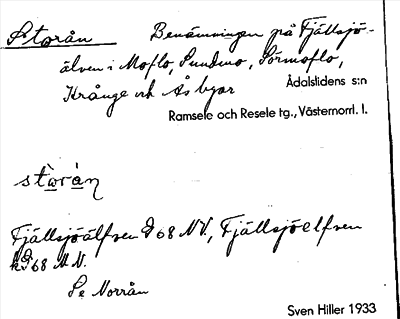 Storån   Benämningen på Fjällsjö-
älven i Moflo, Sundmo, Sörmoflo,
Ådalslidens s:n
Krånge och Åsbyar
Ramsele och Resele tg., Västernorrl. l.
stòrán
Fjällsjöälfven 68 NV., Fjällsjöelfven
68 NV.
Se Norrån
Sven Hiller 1933